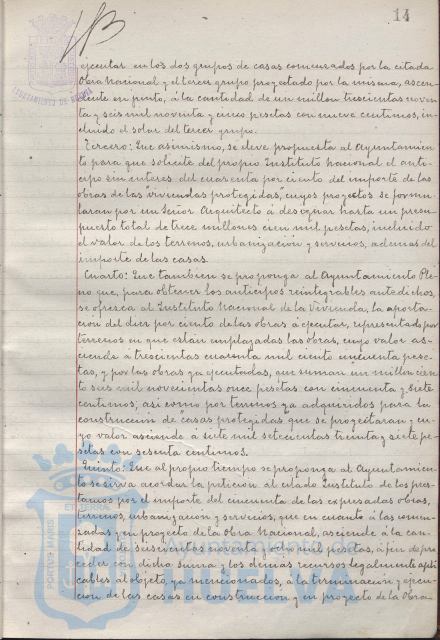 14
AYUNTAMIENTO DE HUELVA
ejecutar en los dos grupos de casas comenzados por la citada
Obra Nacional y el tercer grupo proyectado por la misma, ascen-
dente en junto, á la cantidad de un millon trescientas noven-
ta y seis mil noventa y cinco pesetas con nueve centimos, in-
cluido el solar del tercer grupo.
Tercero: Que asimismo, se eleve propuesta al Ayuntamien-
to para que solicite del propio Instituto Nacional el anti-
cipo sin interes del cuarenta por ciento del importe de las
obras de las "viviendas protegidas", cuyos proyectos se formu-
laran por un Señor Arquitecto á designar hasta un presu-
puesto total de trece millones cien mil pesetas, incluido
el valor de los terrenos, urbanizacion y servicios, ademas del
importe de las casas.
Cuarto: Que tambien se proponga al Ayuntamiento Ple-
no que, para obtener los anticipos reintegrables antedichos,
se ofrezca al Instituto Nacional de la Vivienda, la aporta-
cion del diez por ciento de las obras á ejecutar, representado por
terrenos en que están emplazadas las obras, cuyo valor as-
ciende á trescientas cuarenta mil ciento cincuenta pese-
tas, y por las obras ya ejecutadas, que suman un millon cien-
to seis mil novecientas once pesetas con cincuenta y siete
centimos; asi como por terrenos ya adquiridos para la
construccion de "casas protegidas" que se proyectaran y cu-
yo valor asciende a siete mil setecientas treinta y siete pe-
setas con sesenta centimos.
Quinto: Que al propio tiempo se proponga al Ayuntamien-
to se sirva acordar la peticion al citado Instituto de los pres-
tamos por el importe del cincuenta de las expresadas obras,
terrenos, urbanizacion y servicios, que en cuanto á las comen-
zadas y en proyecto de la Obra Nacional, asciende á la can-
tidad de seiscientas noventa y ocho mil pesetas, á fin de pro-
ceder con dicha suma y los demas recursos legalmente apli-
cables al objeto, ya mencionados, á la terminacion y ejecu-
cion de las casas en construccion y en proyecto de la Obra
PORTUS MARIS
ET TERRÆ